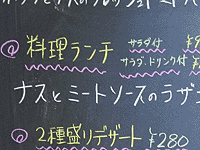 料理ランチ サラダ付 ¥9
サラダ・ドリンク付 ¥
ナスとミートソースのラザ
2種盛りデザート ¥280